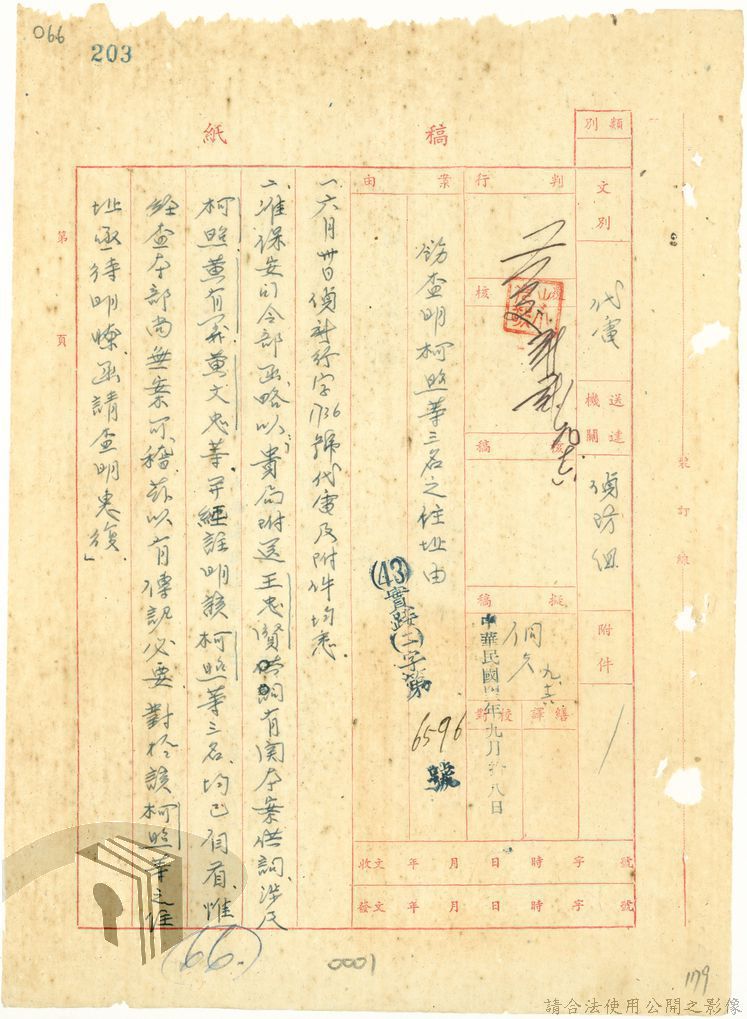 066
203
稿紙
類別
文別
代電
送達機關
偵防組
附件
判行
核
核稿
擬稿
九.十六
繕譯
校對
中華民國四三年九月拾八日
案由
飭查明柯照等三名之住址由
(43)實踐(二)字第6596號
收文 年 月 日 時 字 號
發文 年 月 日 時 字 號
一、六月卅日偵訐行字1736號代電及附件均悉.
二、准保安司令部函略以「貴局附送王忠賢供詞有関本案供詞,涉及
柯照黃有義黃文忠等,并經註明該柯照等三名,均已自首,惟
經查本部尚無案可稽,茲以有傳訊必要,對於該柯照等之住
址亟待明瞭,函請查明惠復」
第 頁
裝訂線
(66)
0001
179
請合法使用公開之影像